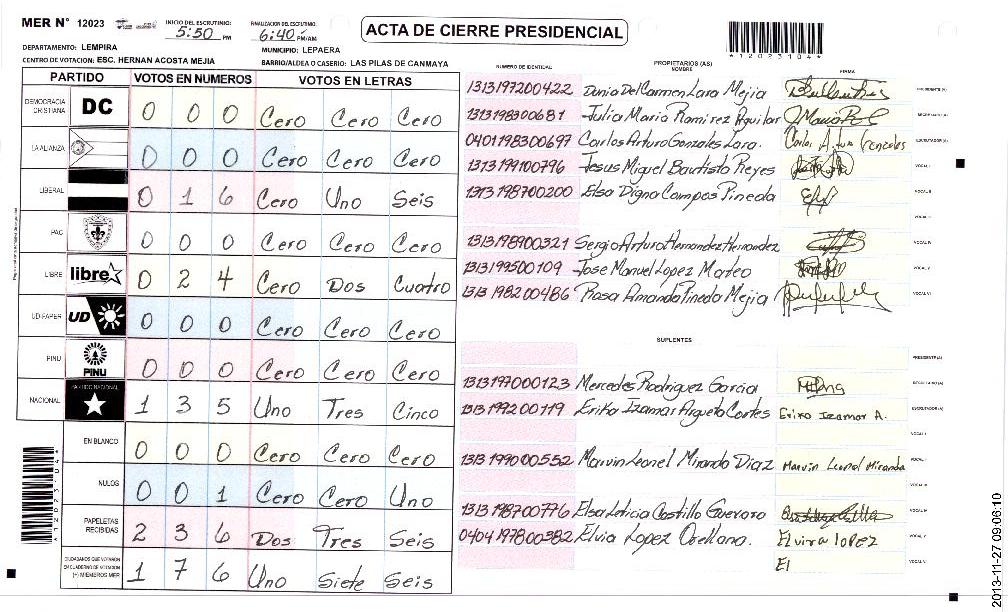 MER N° 12023
INICIO DEL ESCRUTINIO: 5:50 PM
FINALIZACION DEL ESCRUTINIO: 6:40 PM/AM
ACTA DE CIERRE PRESIDENCIAL
*1202310 4*
DEPARTAMENTO: LEMPIRA
MUNICIPIO: LEPAERA
CENTRO DE VOTACION: ESC. HERNAN ACOSTA MEJIA
BARRIO/ALDEA O CASERIO: LAS PILAS DE CANMAYA
PARTIDO VOTOS EN NUMEROS VOTOS EN LETRAS
DEMOCRACIA CRISTIANA DC 0 0 0 Cero Cero Cero
LA ALIANZA 0 0 0 Cero Cero Cero
LIBERAL 0 1 6 Cero Uno Seis
PAC 0 0 0 Cero Cero Cero
LIBRE libre 0 2 4 Cero Dos Cuatro
UD/FAPER UD 0 0 0 Cero Cero Cero
PINU PINU 0 0 0 Cero Cero Cero
NACIONAL PARTIDO NACIONAL 1 3 5 Uno Tres Cinco
EN BLANCO 0 0 0 Cero Cero Cero
NULOS 0 0 1 Cero Cero Uno
PAPELETAS RECIBIDAS 2 3 6 Dos Tres Seis
CIUDADANOS QUE VOTARON EN CUADERNO DE VOTACION (+) MIEMBROS MER 1 7 6 Uno Siete Seis
NUMERO DE IDENTIDAD PROPIETARIOS (AS) NOMBRE FIRMA
1313197200422 Dunia Del Carmen Lara Mejia PRESIDENTE (A)
1313198300681 Julia Maria Ramirez Aguilar SECRETARIO (A)
0401198300697 Carlos Arturo Gonzales Lara. Carlos Arturo Gonzales ESCRUTADOR (A)
1313199100796 Jesus Miguel Bautista Reyes VOCAL I
1313198700200 Elsa Digna Campos Pineda VOCAL II
VOCAL III
1313198900321 Sergio Arturo Hernandez Hernandez VOCAL IV
1313199500109 Jose Manuel Lopez Mateo VOCAL V
1313198200486 Rosa Amanda Pineda Mejia VOCAL VI
SUPLENTES
PRESIDENTE (A)
1313197000123 Mercedes Rodriguez Garcia SECRETARIO (A)
1313199200119 Erika Izamar Argueta Cortes Erika Izamar A. ESCRUTADOR (A)
VOCAL I
1313199000552 Marvin Leonel Miranda Diaz Marvin Leonel Miranda
1313198700776 Elsa Leticia Castillo Guevara
0404197800382 Elvia Lopez Orellano. Elvira lopez VOCAL V
El VOCAL VI
2013-11-27 09:06:10